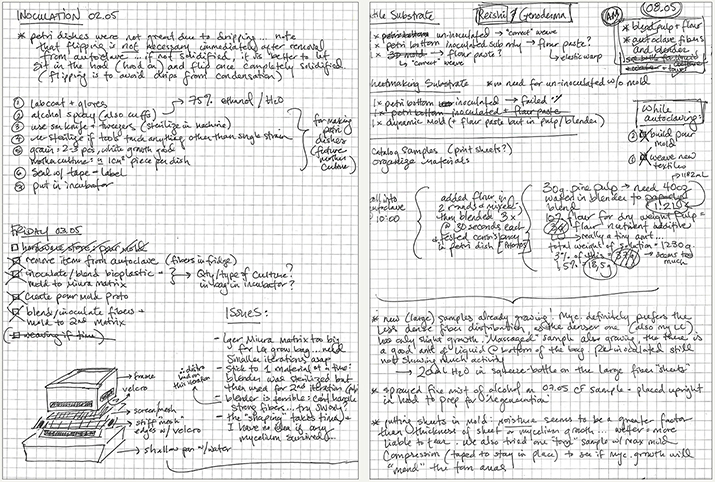 INOCULATION 02.05
* petri dishes were not great due to dripping... note
that flipping is not necessary immediately after removal
from autoclave... if not solidified, it is better to let
sit in the hood (hood on) and flip once completely solidified
(flipping is to avoid drips from condensation)
① labcoat + gloves
② alcohol spray (also cuffs) → 75% ethanol / H2O
③ use knife + tweezers (sterilize in machine)
④ use sterilize if tools touch anything other than single strain
⑤ grain = 2-3 pcs, white growth good
mother culture = 1cm² piece per dish
⑥ seal w/ tape - label
⑦ put in incubator
for making
petri
dishes
(future
mother
culture)
FRIDAY 03.05
hardware store / pour mold
remove item from autoclave (fibers in fridge)
inoculate/blend bioplastic +
mold to Miura matrix
→ Qty/type of culture?
in bag in incubator?
create pour mold proto
blend/inoculate fibers +
mold to 2nd matrix
(weaving if time)
ISSUES:
- lger Miura matrix too big
for lg grow bag... need
smaller iterations asap
- stick to 1 material at a time:
blender was sterilized but
then used for 2nd iteration
- blender is terrible: can't handle
strong fibers...
- the "shaping" takes time +
I have no idea if any
mycelium survived...
frame
velcro
screen mesh
stiff mesh
edges w/ velcro
shallow pan w/ water
tile Substrate
Reishi / Ganoderma
08.05
* petri bottom un-inoculated → "comet" weave
* petri bottom inoculated sub only → flour paste?
* 3D mold → flour paste?
↳ "comet" weave
↳ elastic warp
* blend pulp + flour
* autoclave fibers
and blender
Sheetmaking Substrate * no need for un-inoculated w/o mold
1x petri bottom inoculated → failed
1x petri bottom inoculated + flour paste
1x dynamic mold (+ flour paste but in pulp/blender)
While
autoclaving:
① build pour
mold
② weave new
textiles
Catalog Samples (print sheets?)
organize materials
all into
autoclave
@ 10:00
added flour in
2 rounds of mixer
then blended 3x
@ 30 seconds each
+ tested consistency
in petri dish
30g pine pulp → need 400g
water in blender to
blend
10% flour for dry weight pulp =
3g flour nutrient additive
really a tiny amt...
total weight of solution = 1230g
3% of this = 37g → seems too
much
1,5% = 18,5g
* new (large) samples already growing! Myc. definitely prefers the
less dense fiber distribution, as the denser one (also my LC)
has only slight growth. "Massaged" sample also growing, tho there is
a good amt of liquid @ bottom of the bag. Re-inoculated still
not showing much action.
→ 20ml H2O in squeeze-bottle on the large fiber "sheets"
* sprayed fine mist of alcohol on 07.05 CF sample - placed upright
in hood to prep for "regeneration"
* putting sheets in mold: moisture seems to be a greater factor
than thickness of sheet or mycelium growth... wetter = more
liable to tear. We also tried one "torn" sample w/ max mold
compression (taped to stay in place) to see if myc. growth will
"mend" the torn areas